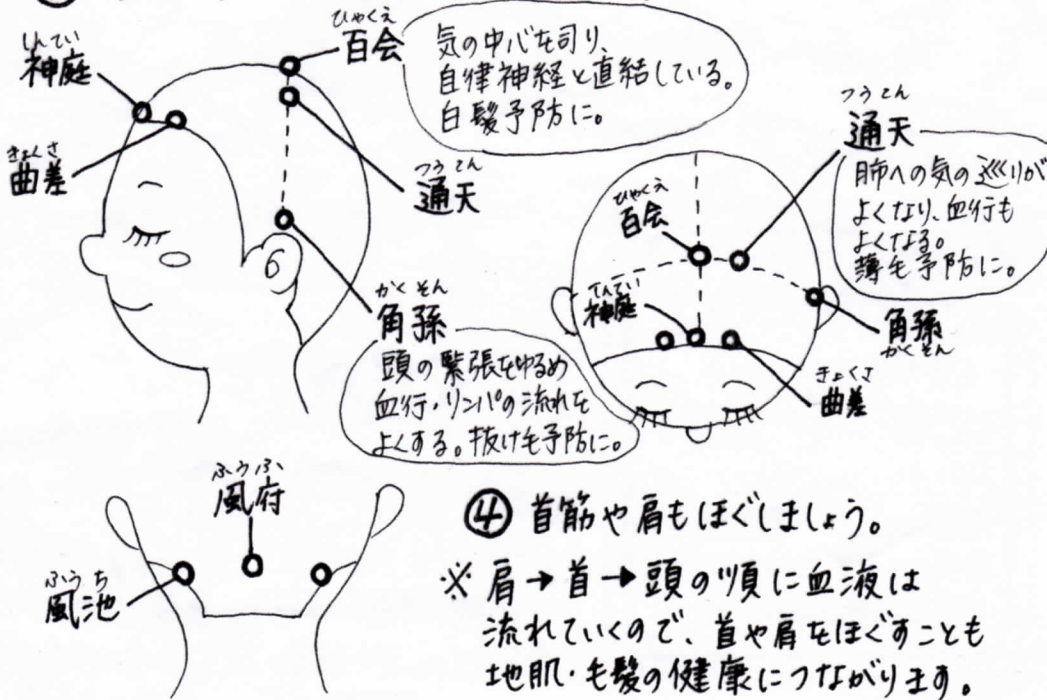 しんてい
神庭
きょくさ
曲差
ひゃくえ
百会
気の中心を司り、
自律神経と直結している。
白髪予防に。
つうてん
通天
かくそん
角孫
頭の緊張をゆるめ
血行・リンパの流れを
よくする。抜け毛予防に。
つうてん
通天
肺への気の巡りが
よくなり、血行も
よくなる。
薄毛予防に。
ひゃくえ
百会
てんてい
神庭
角孫
かくそん
きょくさ
曲差
ふうふ
風府
ふうち
風池
④ 首筋や肩もほぐしましょう。
※ 肩→首→頭の順に血液は
流れていくので、首や肩をほぐすことも
地肌・毛髪の健康につながります。